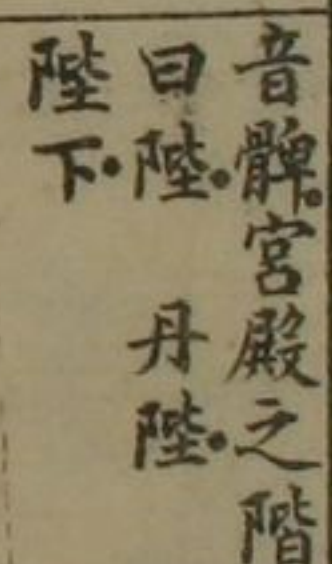 音髀。宮殿之階
曰陛。 丹陛。
陛下。